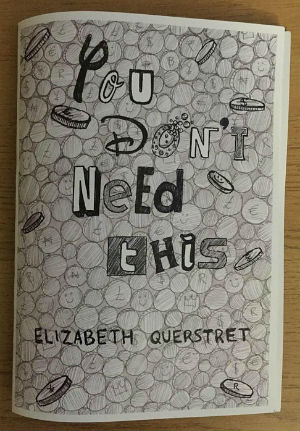 You
DON'T
NeEd
tHiS
ELIZABETH QUERSTRET